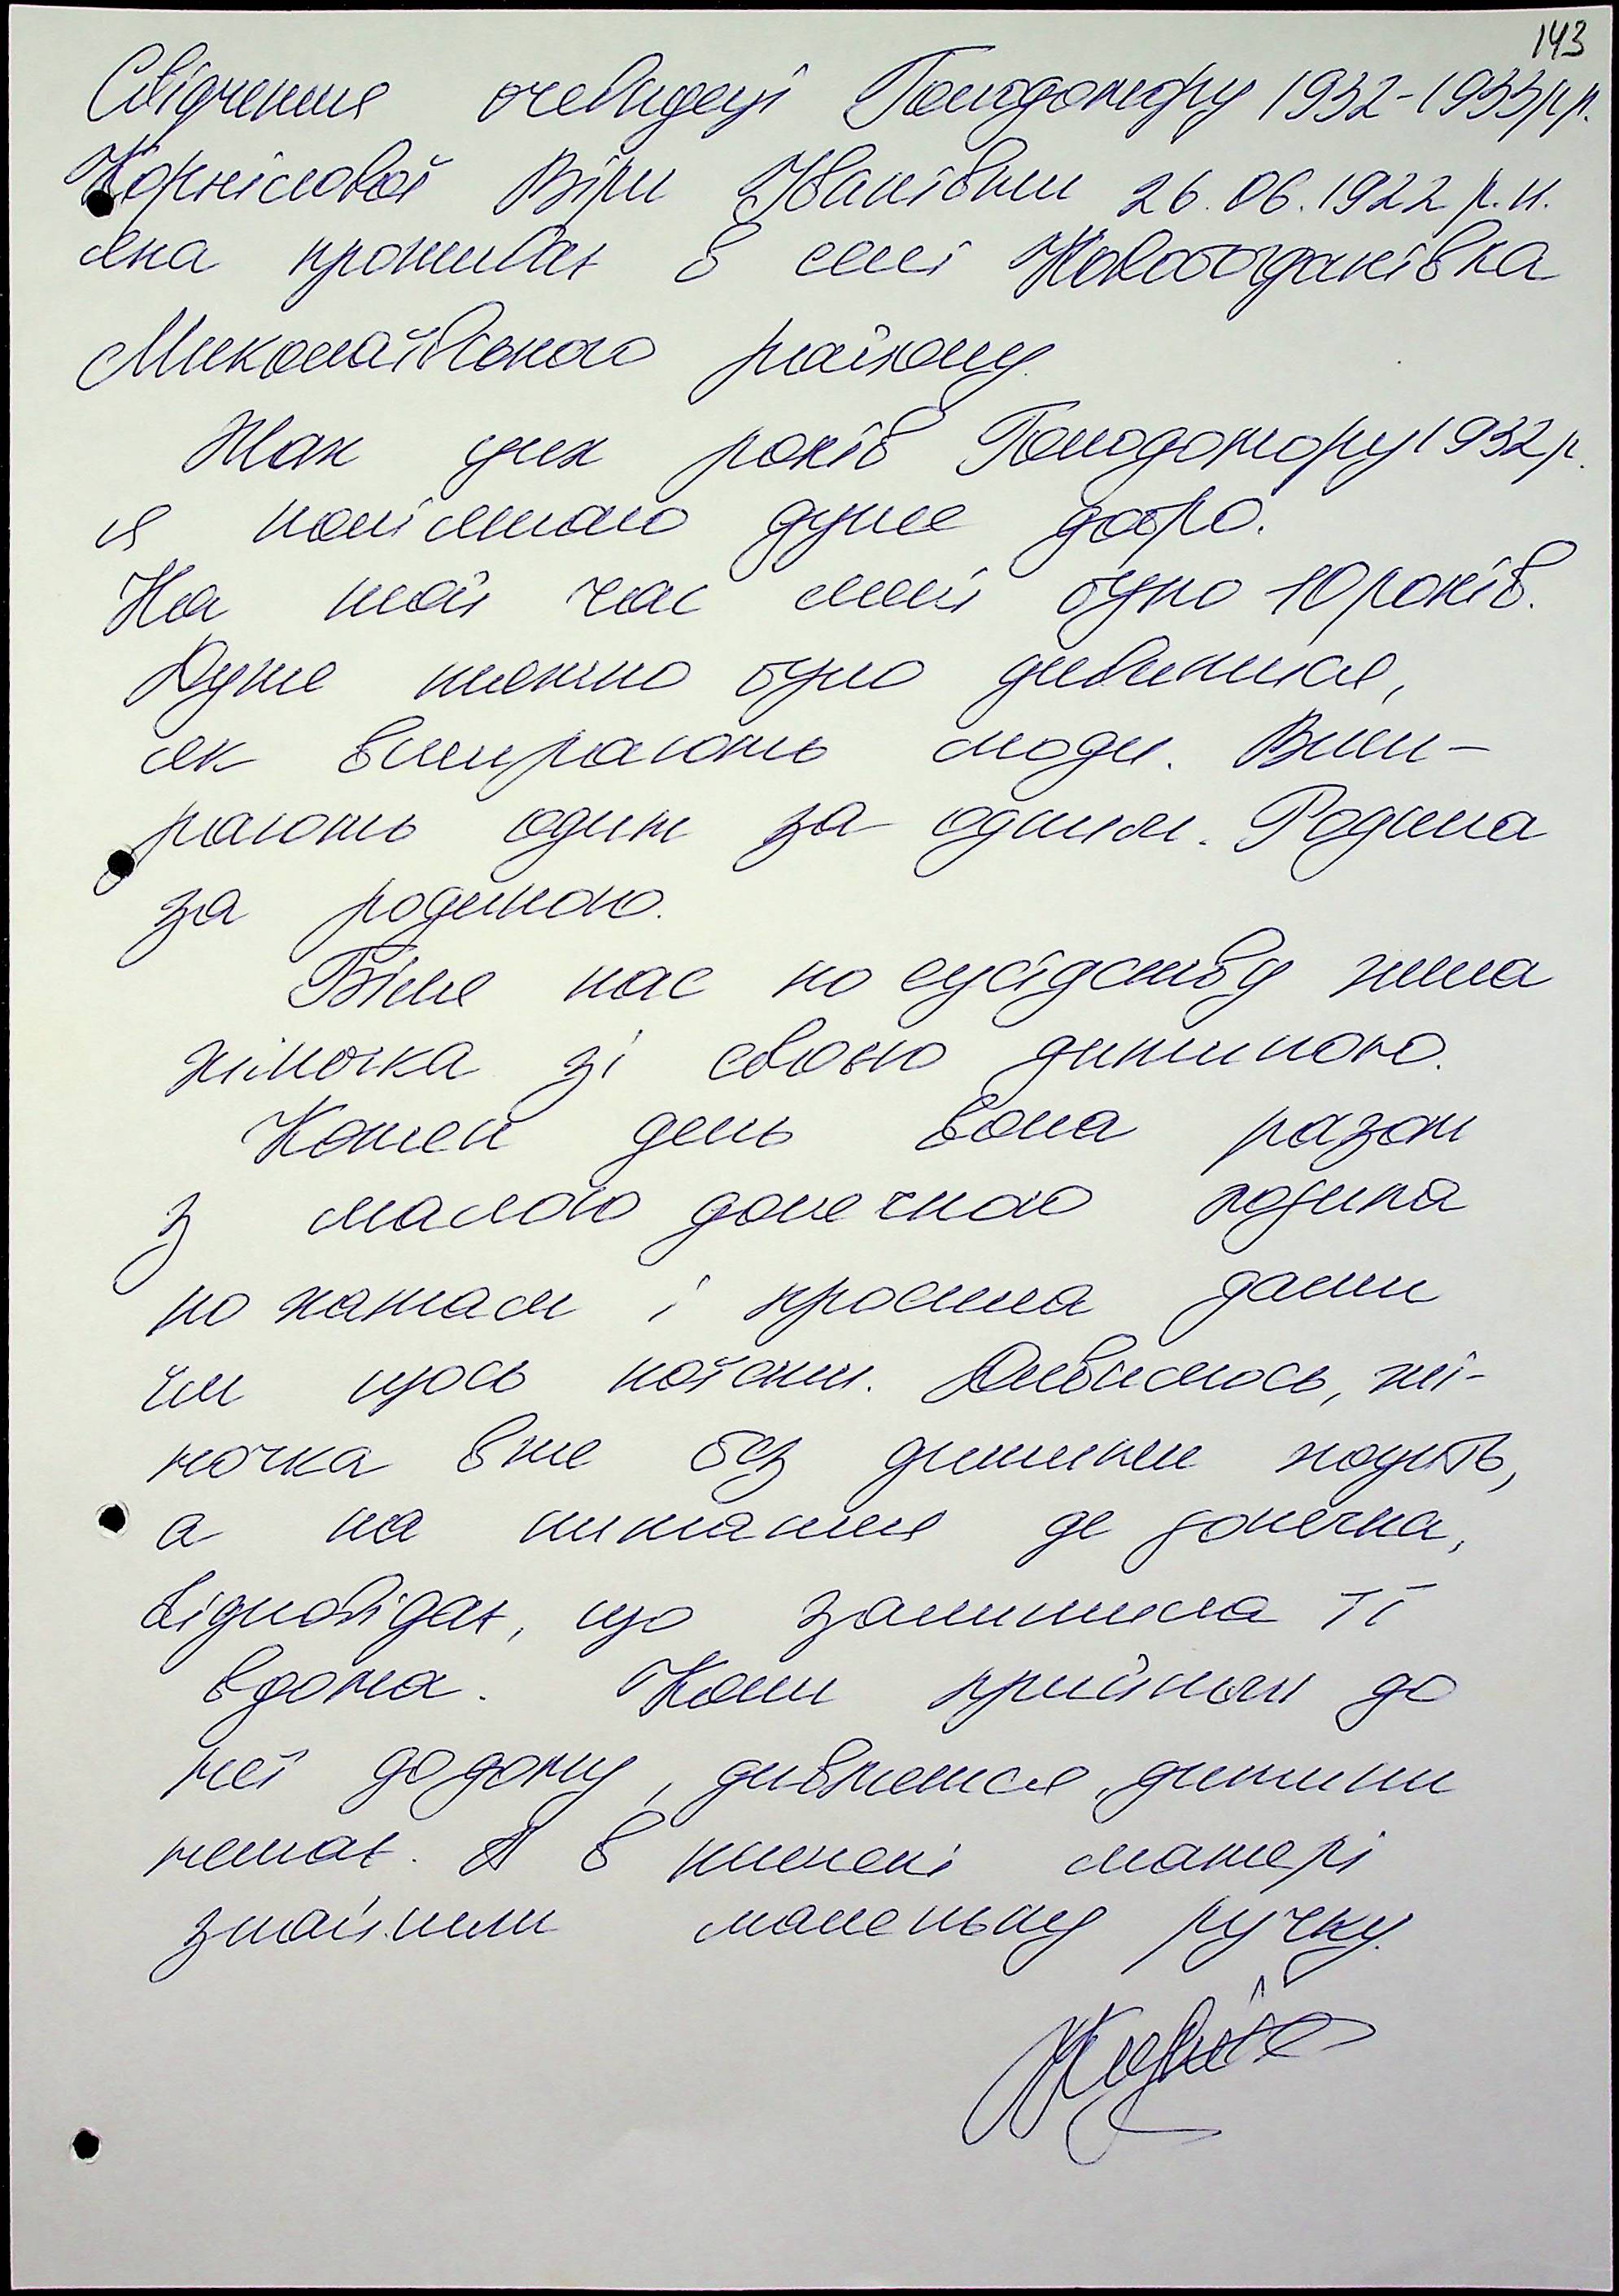 143
Свідчення очевидці Голодомору 1932-1933р.р.
Корнісловой Віри Іванівни 26.06.1922 р.н.
яка проживає в селі Новобогданівка
Миколаївського району.
Жах цих років Голодомору 1932р.
я памʼятаю дуже добре.
На той час мені було 10 років.
Дуже тяжко було дивитися,
як вмирають люди. Вми-
рають один за одним. Родина
за родиною.
Біля нас по сусідству жила
жіночка зі своєю дитиною.
Кожен день вона разом
з малою донечкою ходила
по хатам і просила дати
їм щось поїсти. Дивимось, жі-
ночка вже без дитини ходить,
а на питання де донечка,
відповідає, що залишила її
вдома. Коли прийшли до
неї додому, дивляться дитини
немає. А в тижені матері
знайшли маленьку ручку.